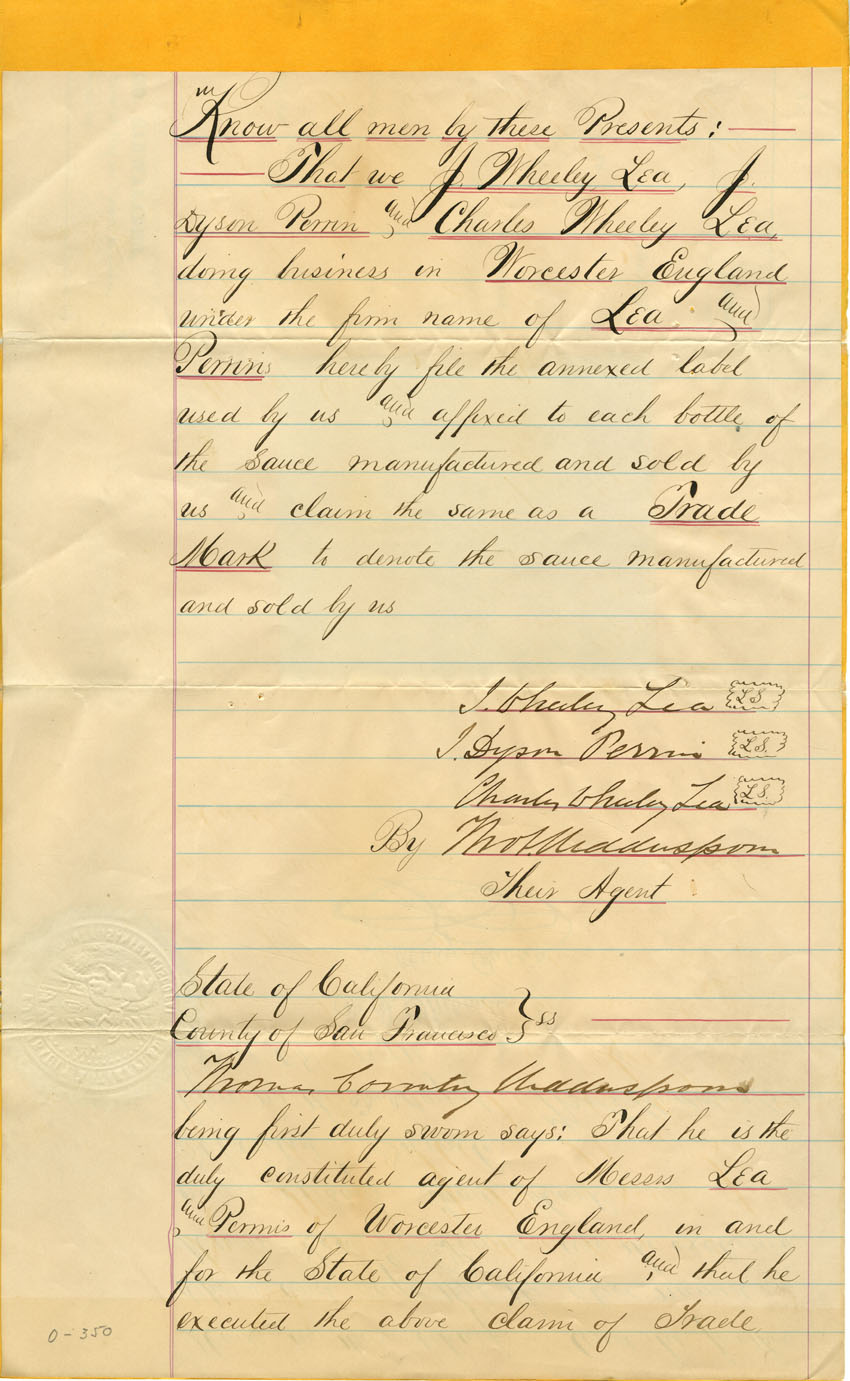 Know all men by these Presents:
That we J. Wheeley Lea, J.
Dyson Perrin and Charles Wheeley Lea,
doing business in Worcester England
under the firm name of Lea and
Perrins hereby file the annexed label
used by us and affixed to each bottle of
the sauce manufactured and sold by
us and claim the same as a Trade
Mark to denote the sauce manufactured
and sold by us
J. Wheeley Lea L.S.
J. Dyson Perrin L.S.
Charles Wheeley Lea L.S.
By
Their Agent
State of California
County of San Francisco } ss
Thomas
being first duly sworn says: That he is the
duly constituted agent of Messrs Lea
and Perrins of Worcester England, in and
for the State of California and that he
executed the above claim of Trade
0-350